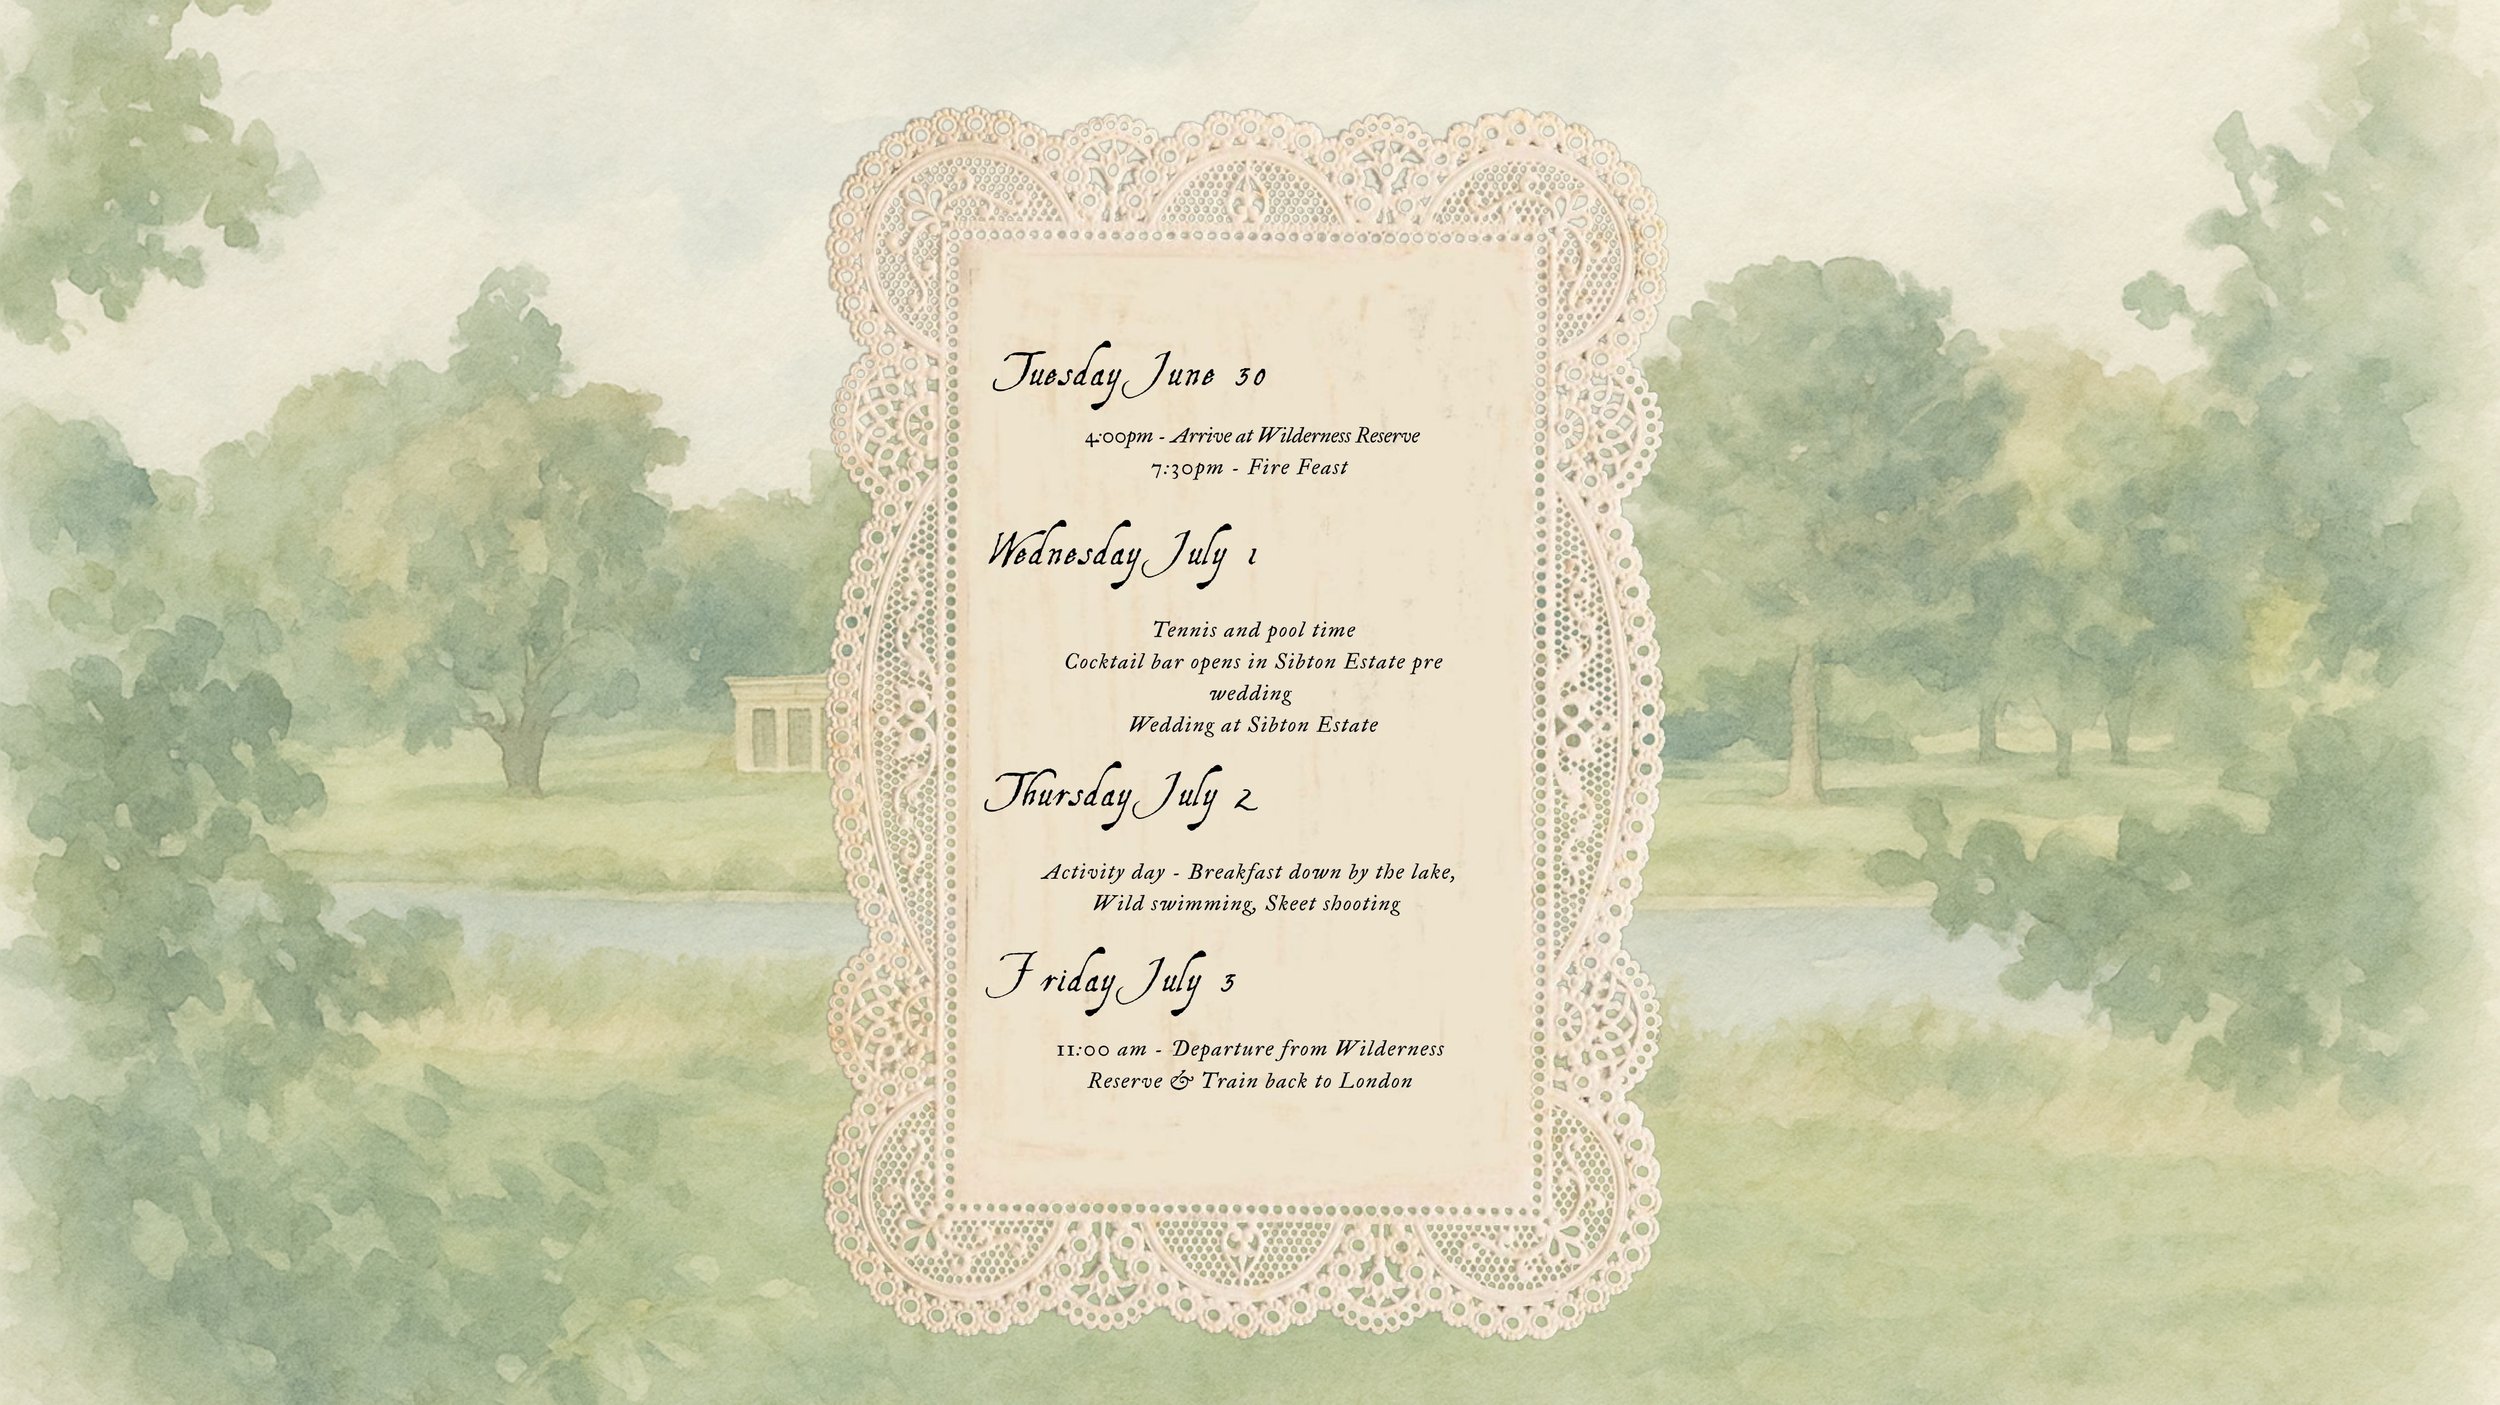 Tuesday June 30
4:00pm - Arrive at Wilderness Reserve
7:30pm - Fire Feast
Wednesday July 1
Tennis and pool time
Cocktail bar opens in Sibton Estate pre
wedding
Wedding at Sibton Estate
Thursday July 2
Activity day - Breakfast down by the lake,
Wild swimming, Skeet shooting
Friday July 3
11:00 am - Departure from Wilderness
Reserve & Train back to London